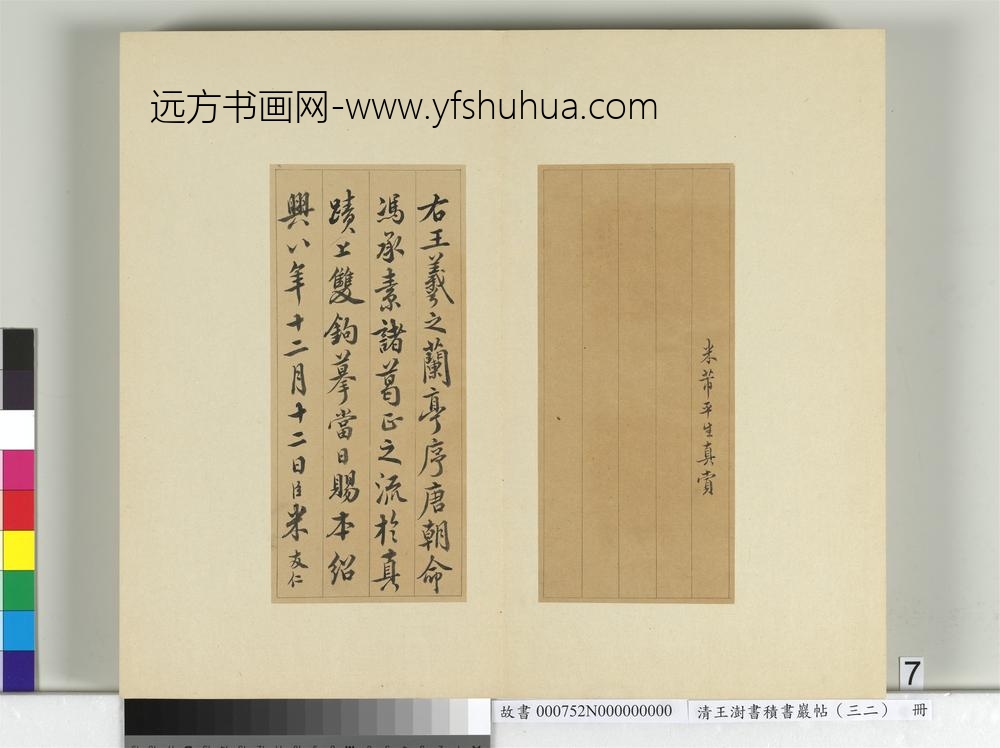 远方书画网-www.yfshuhua.com
米芾平生真賞
右王羲之蘭亭序唐朝命
馮承素諸葛正之流於真
蹟上雙鉤摹當日賜本紹
興八年十二月十二日臣米友仁
7
故書 000752N000000000 清王澍書積書巖帖（三二） 冊